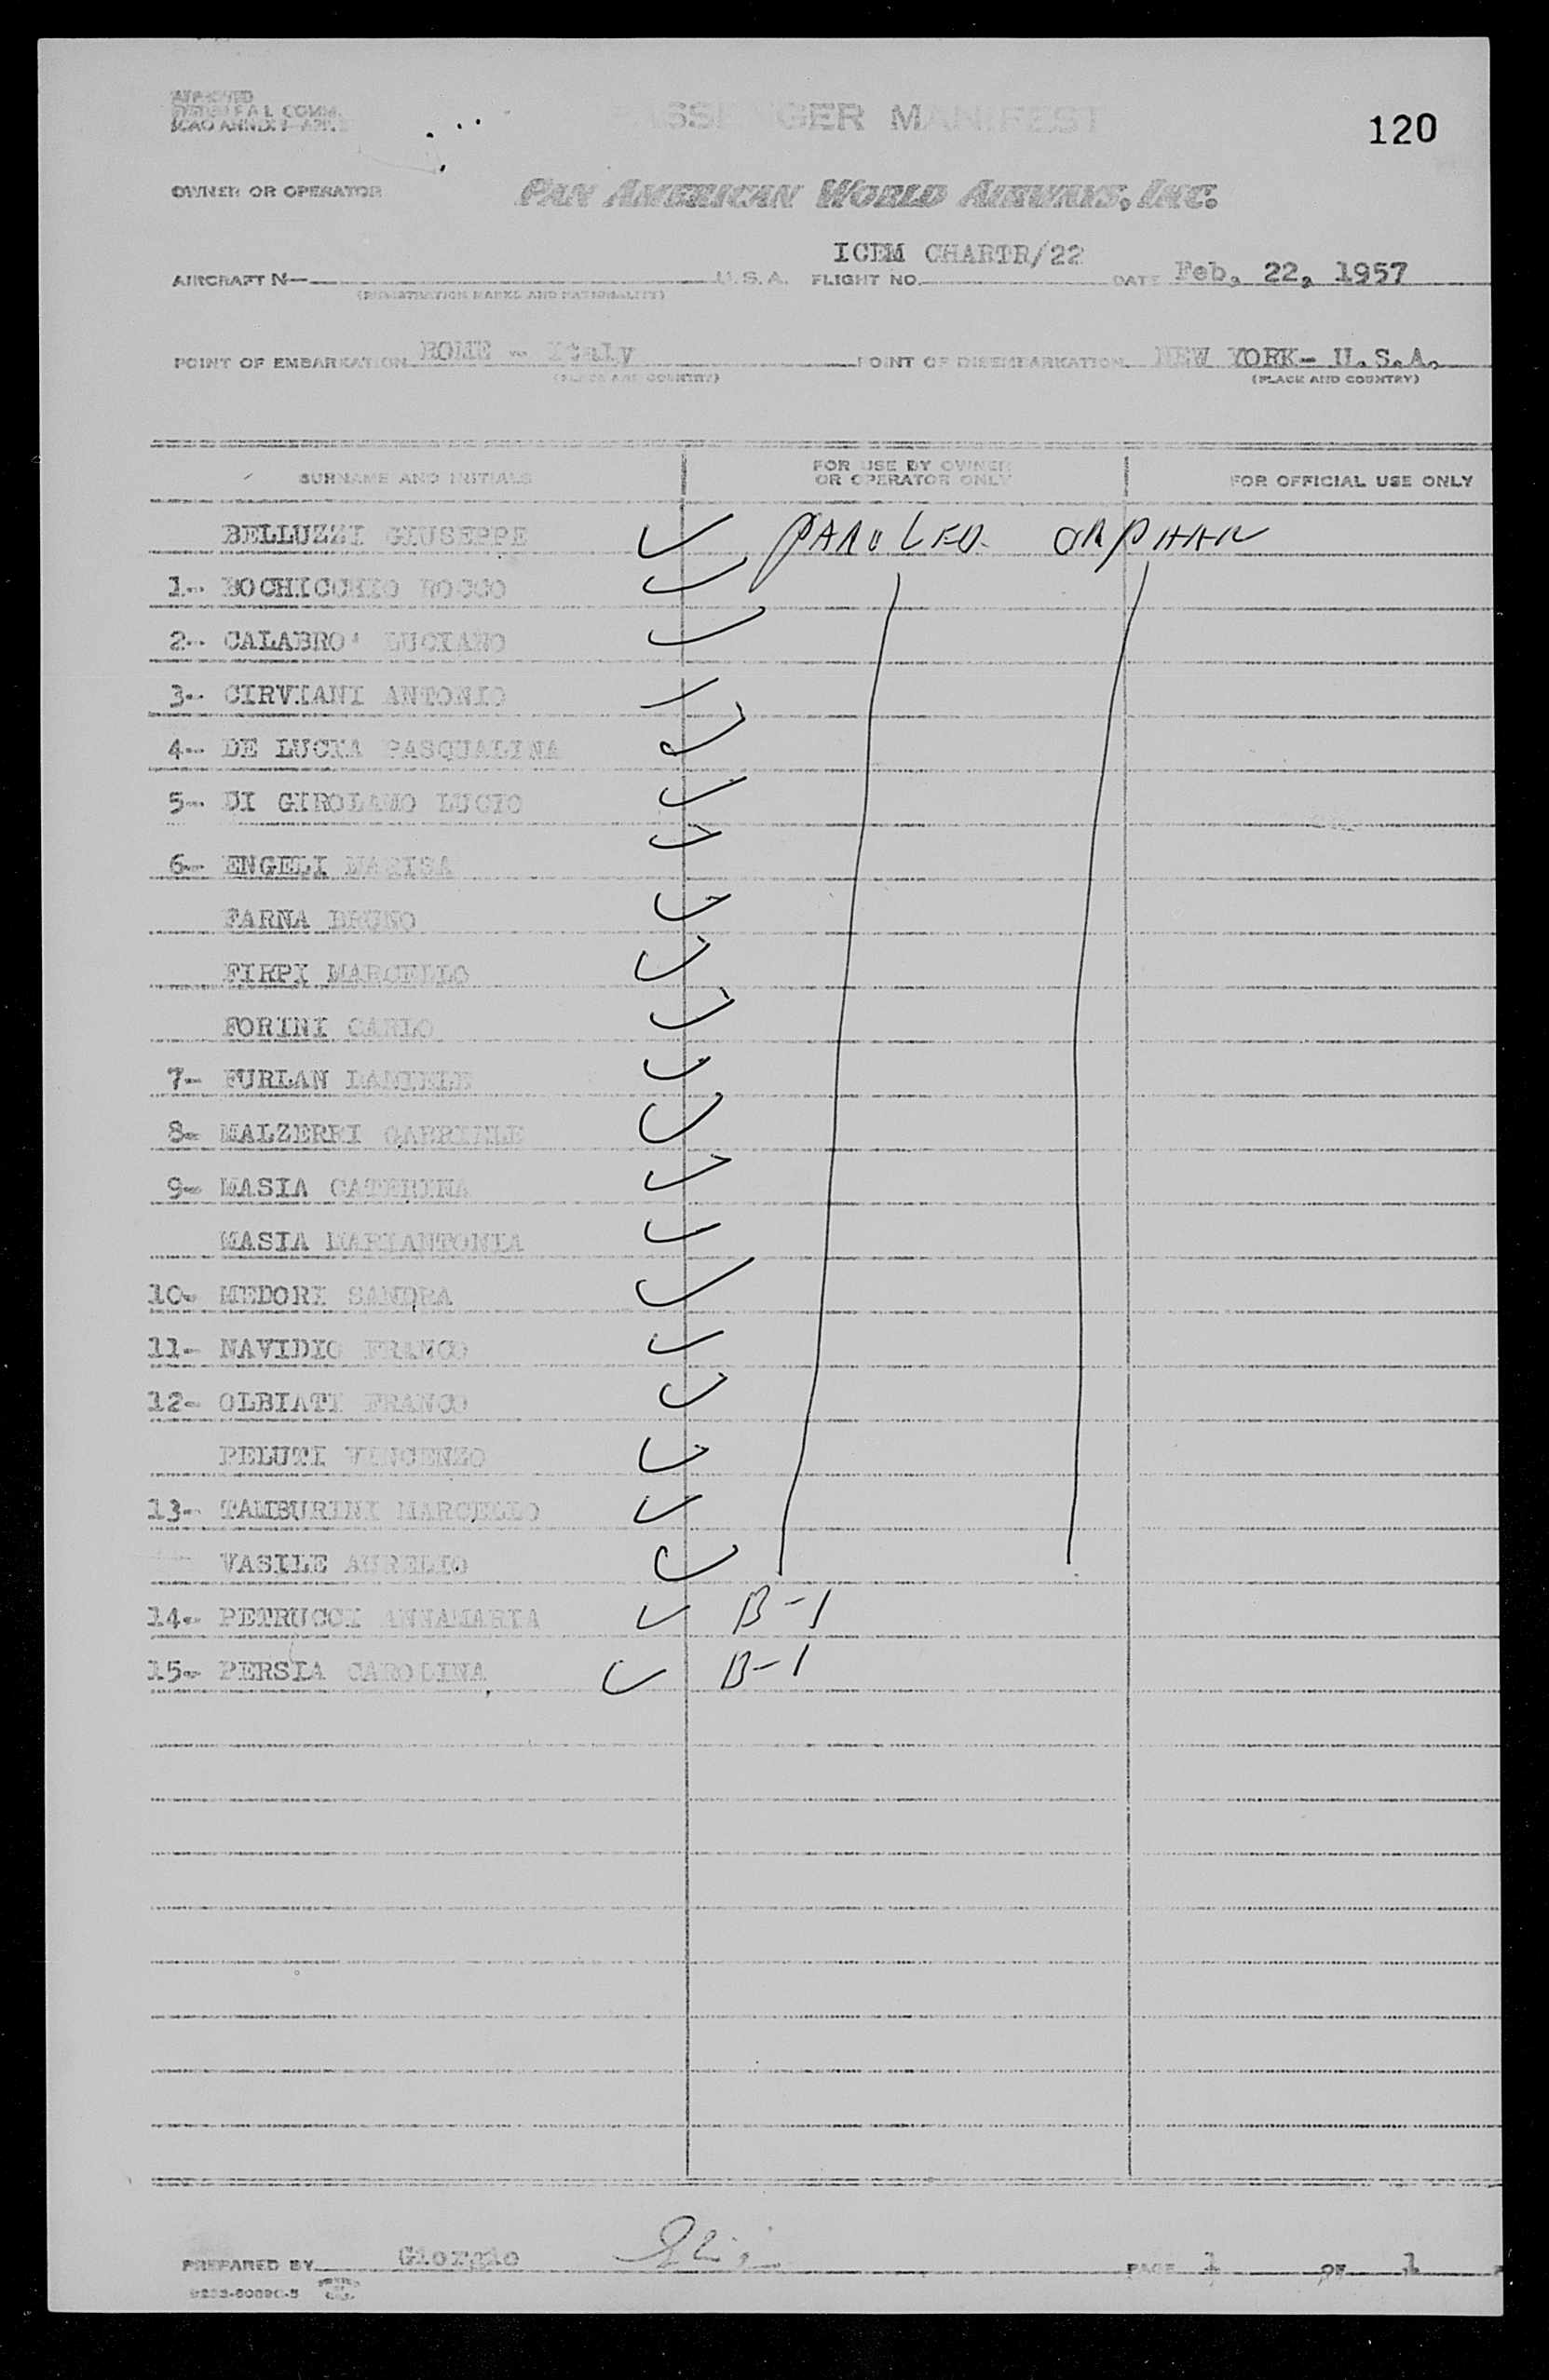 APPROVED
ICAO ANNEX 9 APP.
PASSENGER MANIFEST
120
OWNER OR OPERATOR PAN AMERICAN WORLD AIRWAYS, INC.
ICEM CHARTR/22
AIRCRAFT N— U.S.A. FLIGHT NO. DATE Feb, 22, 1957
(REGISTRATION MARKS AND NATIONALITY)
POINT OF EMBARKATION ROME - Italy POINT OF DISEMBARKATION NEW YORK- U.S.A.
(PLACE AND COUNTRY) (PLACE AND COUNTRY)
SURNAME AND INITIALS FOR USE BY OWNER OR OPERATOR ONLY FOR OFFICIAL USE ONLY
BELLUZZI GIUSEPPE ✓ PAROLED ORPHAN
1- BOCHICCHIO ROCCO ✓
2- CALABRO' LUCIANO ✓
3- CIRVIANI ANTONIO ✓
4- DE LUCIA PASQUALINA ✓
5- DI GIROLAMO LUCIO ✓
6- ENGELI MARISA ✓
FARNA BRUNO ✓
FIRPI MARCELLO ✓
FORINI CARLO ✓
7- FURLAN DANIELE ✓
8- MALZERRI GABRIELE ✓
9- MASIA CATERINA ✓
MASIA MARIANTONIA ✓
10- MEDORI SANDRA ✓
11- NAVIDIO FRANCO ✓
12- OLBIATI FRANCO ✓
PELUTI VINCENZO ✓
13- TAMBURINI MARCELLO ✓
VASILE AURELIO ✓
14- PETRUCCI ANNAMARIA ✓ B-1
15- PERSIA CAROLINA ✓ B-1
PREPARED BY Giorgio PAGE 1 OF 1